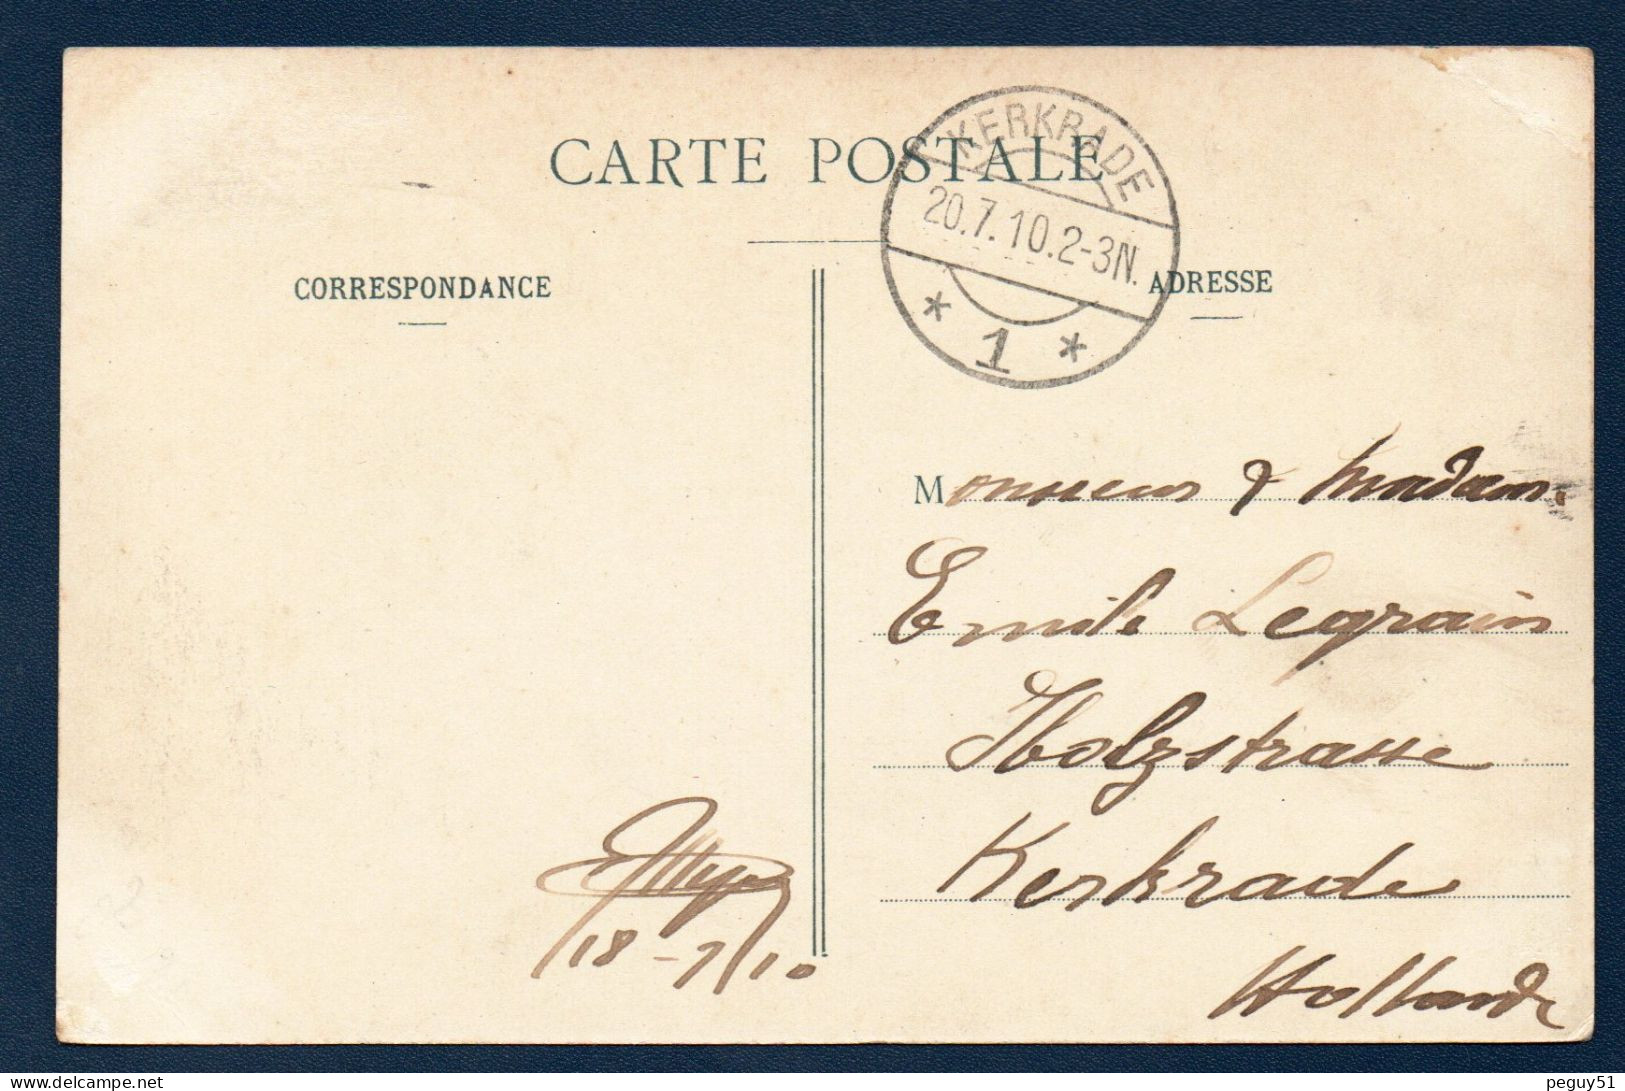 CARTE POSTALE
KERKRADE
20.7.10.2-3N.
* 1 *
CORRESPONDANCE
ADRESSE
Monsieur & Madam.
Emile Legrain
Holzstrasse
Kerkrade
Hollande
18-7/10
delcampe.net
peguy51